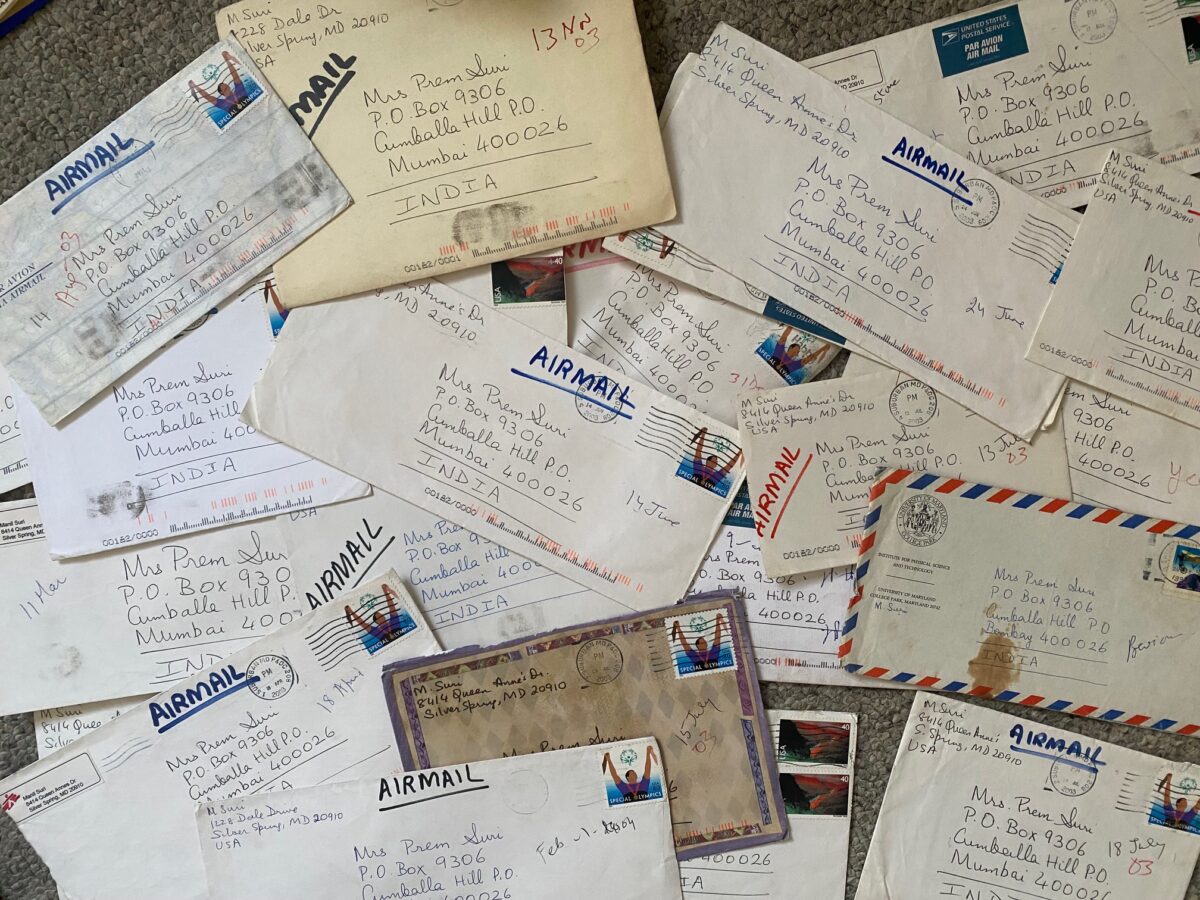 M Suri
1228 Dale Dr
Silver Spring, MD 20910
USA
13 Nov
03
Mrs Prem Suri
P.O. Box 9306
Cumballa Hill P.O.
Mumbai 400026
INDIA
00182/0001
AIRMAIL
SPECIAL OLYMPICS
14 Aug 03
Mrs Prem Suri
P.O. Box 9306
Cumballa Hill P.O.
Mumbai 400026
INDIA
M Suri
8414 Queen Anne's Dr
Silver Spring, MD 20910
AIRMAIL
Mrs Prem Suri
P.O. Box 9306
Cumballa Hill P.O.
Mumbai 400026
INDIA
24 June
00182/0000
UNITED STATES
POSTAL SERVICE
PAR AVION
AIR MAIL
Mrs Prem Suri
P.O. Box 9306
Cumballa Hill P.O.
Mumbai 400026
INDIA
M Suri
8414 Queen Anne's Dr
Silver Spring, MD 20910
USA
P.O. Box
Cumballa
Mumbai
INDIA
00182/0000
Mrs Prem Suri
P.O. Box 9306
Cumballa Hill P.O.
Mumbai 400
INDIA
00182/0000
USA
40
Mrs Prem Suri
P.O. Box 9306
Cumballa Hill P.O.
MD 20910
AIRMAIL
Mrs Prem Suri
P.O. Box 9306
Cumballa Hill P.O.
Mumbai 400026
INDIA
14 June
00182/0000
SPECIAL OLYMPICS
M Suri
8414 Queen Anne's Dr
Silver Spring, MD 20910
USA
AIRMAIL
Mrs Prem Suri
P.O. Box 9306
Cumballa Hill P.O.
13 July
03
00182/0000
Hill P.O.
400026
UNIVERSITY OF MARYLAND
INSTITUTE FOR PHYSICAL SCIENCE
AND TECHNOLOGY
UNIVERSITY OF MARYLAND
COLLEGE PARK, MARYLAND 20742
M Suri
Mrs Prem Suri
P.O. Box 9306
Cumballa Hill P.O
Bombay 400026
INDIA
Manil Suri
8414 Queen Annes Dr
Silver Spring, MD
11 Mar
Mrs Prem Sur
P.O. Box 930
Cumballa Hill P
Mumbai 400
IND
USA
AIRMAIL
P.O. Box 9306
Cumballa Hill P.O.
Mumbai 400026
INDIA
400026
M Suri
8414 Queen
Silver
Manil Suri
8414 Queen Annes Dr
Silver Spring, MD 20910
AIRMAIL
SUBURBAN MD P&DC 208
PM
18 APR
2003
18 April
Mrs Prem Suri
P.O. Box 9306
Cumballa Hill P.O.
Mumbai 400026
M. Suri
8414 Queen Anne's Dr.
Silver Spring, MD 20910
SPECIAL OLYMPICS
15 July
03
Mrs Prem Suri
USA
40
USA
40
M Suri
1228 Dale Drive
Silver Spring, MD 20910
USA
AIRMAIL
SPECIAL OLYMPICS
Mrs Prem Suri
P.O. Box 9306
Cumballa Hill P.O.
Mumbai 400026
M Suri
8414 Queen Anne's Dr
S. Spring, MD 20910
USA
AIRMAIL
Mrs. Prem Suri
P.O. Box 9306
Cumballa Hill P.O.
Mumbai 400026
18 July
03